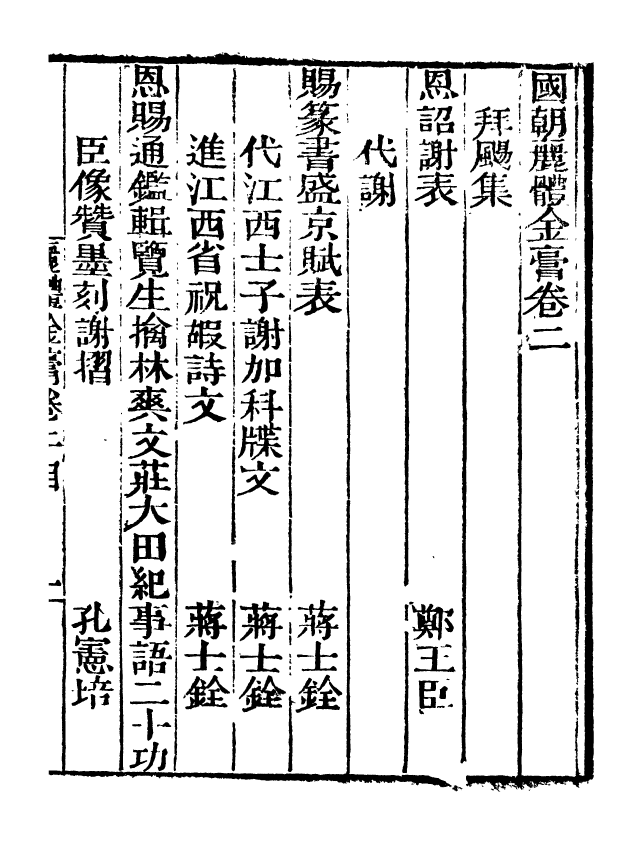 國朝麗體金膏卷二
拜颺集
恩詔謝表 鄭王臣
代謝
賜篆書盛京賦表 蔣士銓
代江西士子謝加科牒文 蔣士銓
進江西省祝嘏詩文 蔣士銓
恩賜通鑑輯覽生擒林爽文莊大田紀事語二十功
臣像贊墨刻謝摺 孔憲培
麗體金膏卷二目 一